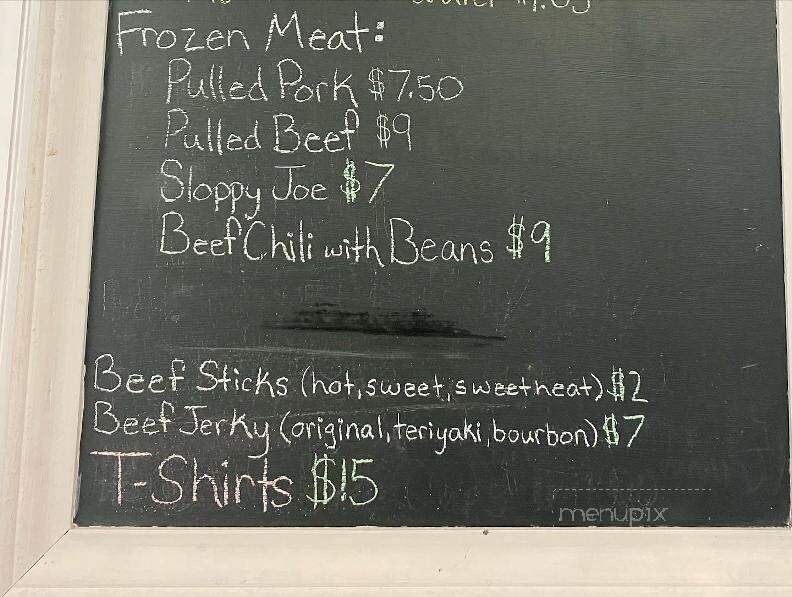 Frozen Meat:
Pulled Pork $7.50
Pulled Beef $9
Sloppy Joe $7
Beef Chili with Beans $9
Beef Sticks (hot, sweet, sweet heat) $2
Beef Jerky (original, teriyaki, bourbon) $7
T-Shirts $15
menupix